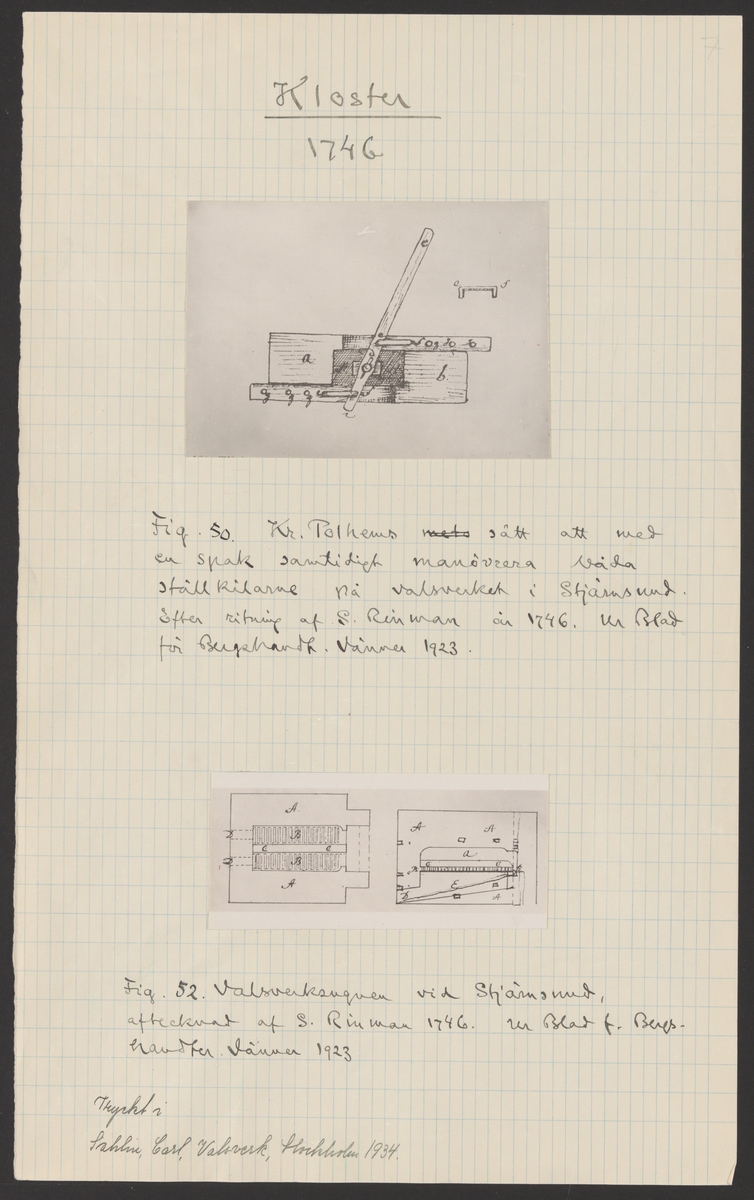 7
Kloster
1746
e
o f
a
g o b
b
g g g
i
Fig. 50. Kr. Polhems mets sätt att med
en spak samtidigt manövrera båda
ställkilarne på valsverket i Stjärnsund.
Efter ritning af S. Rinman år 1746. Ur Blad
för Bergshandt. Vänner 1923.
A
D B
C C
D B
A
A A
a
C C
E
D A
Fig. 52. Valsverksugnen vid Stjärnsund,
aftecknad af S. Rinman 1746. Ur Blad f. Bergs-
handter. Vänner 1923
Tryckt i
Sahlin, Carl, Valsverk, Stockholm 1934.